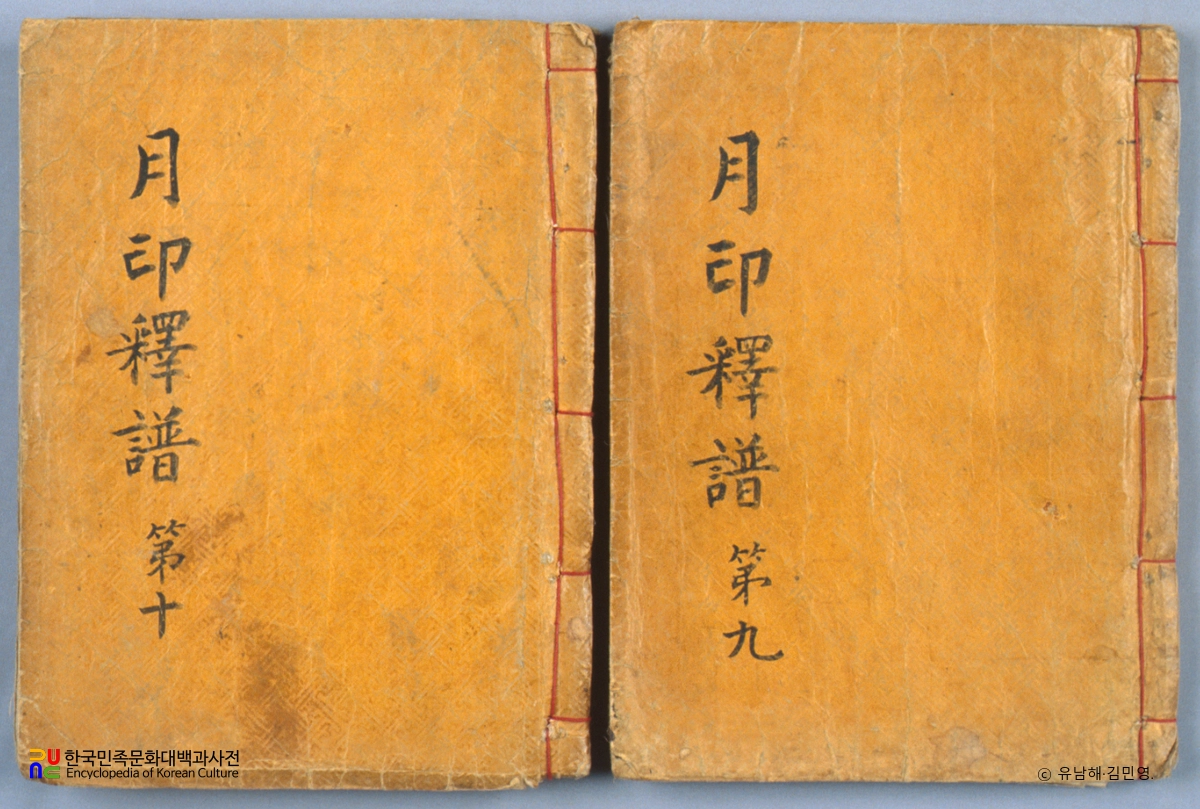 月印釋譜 第十
月印釋譜 第九
한국민족문화대백과사전
Encyclopedia of Korean Culture
ⓒ 유남해·김민영.